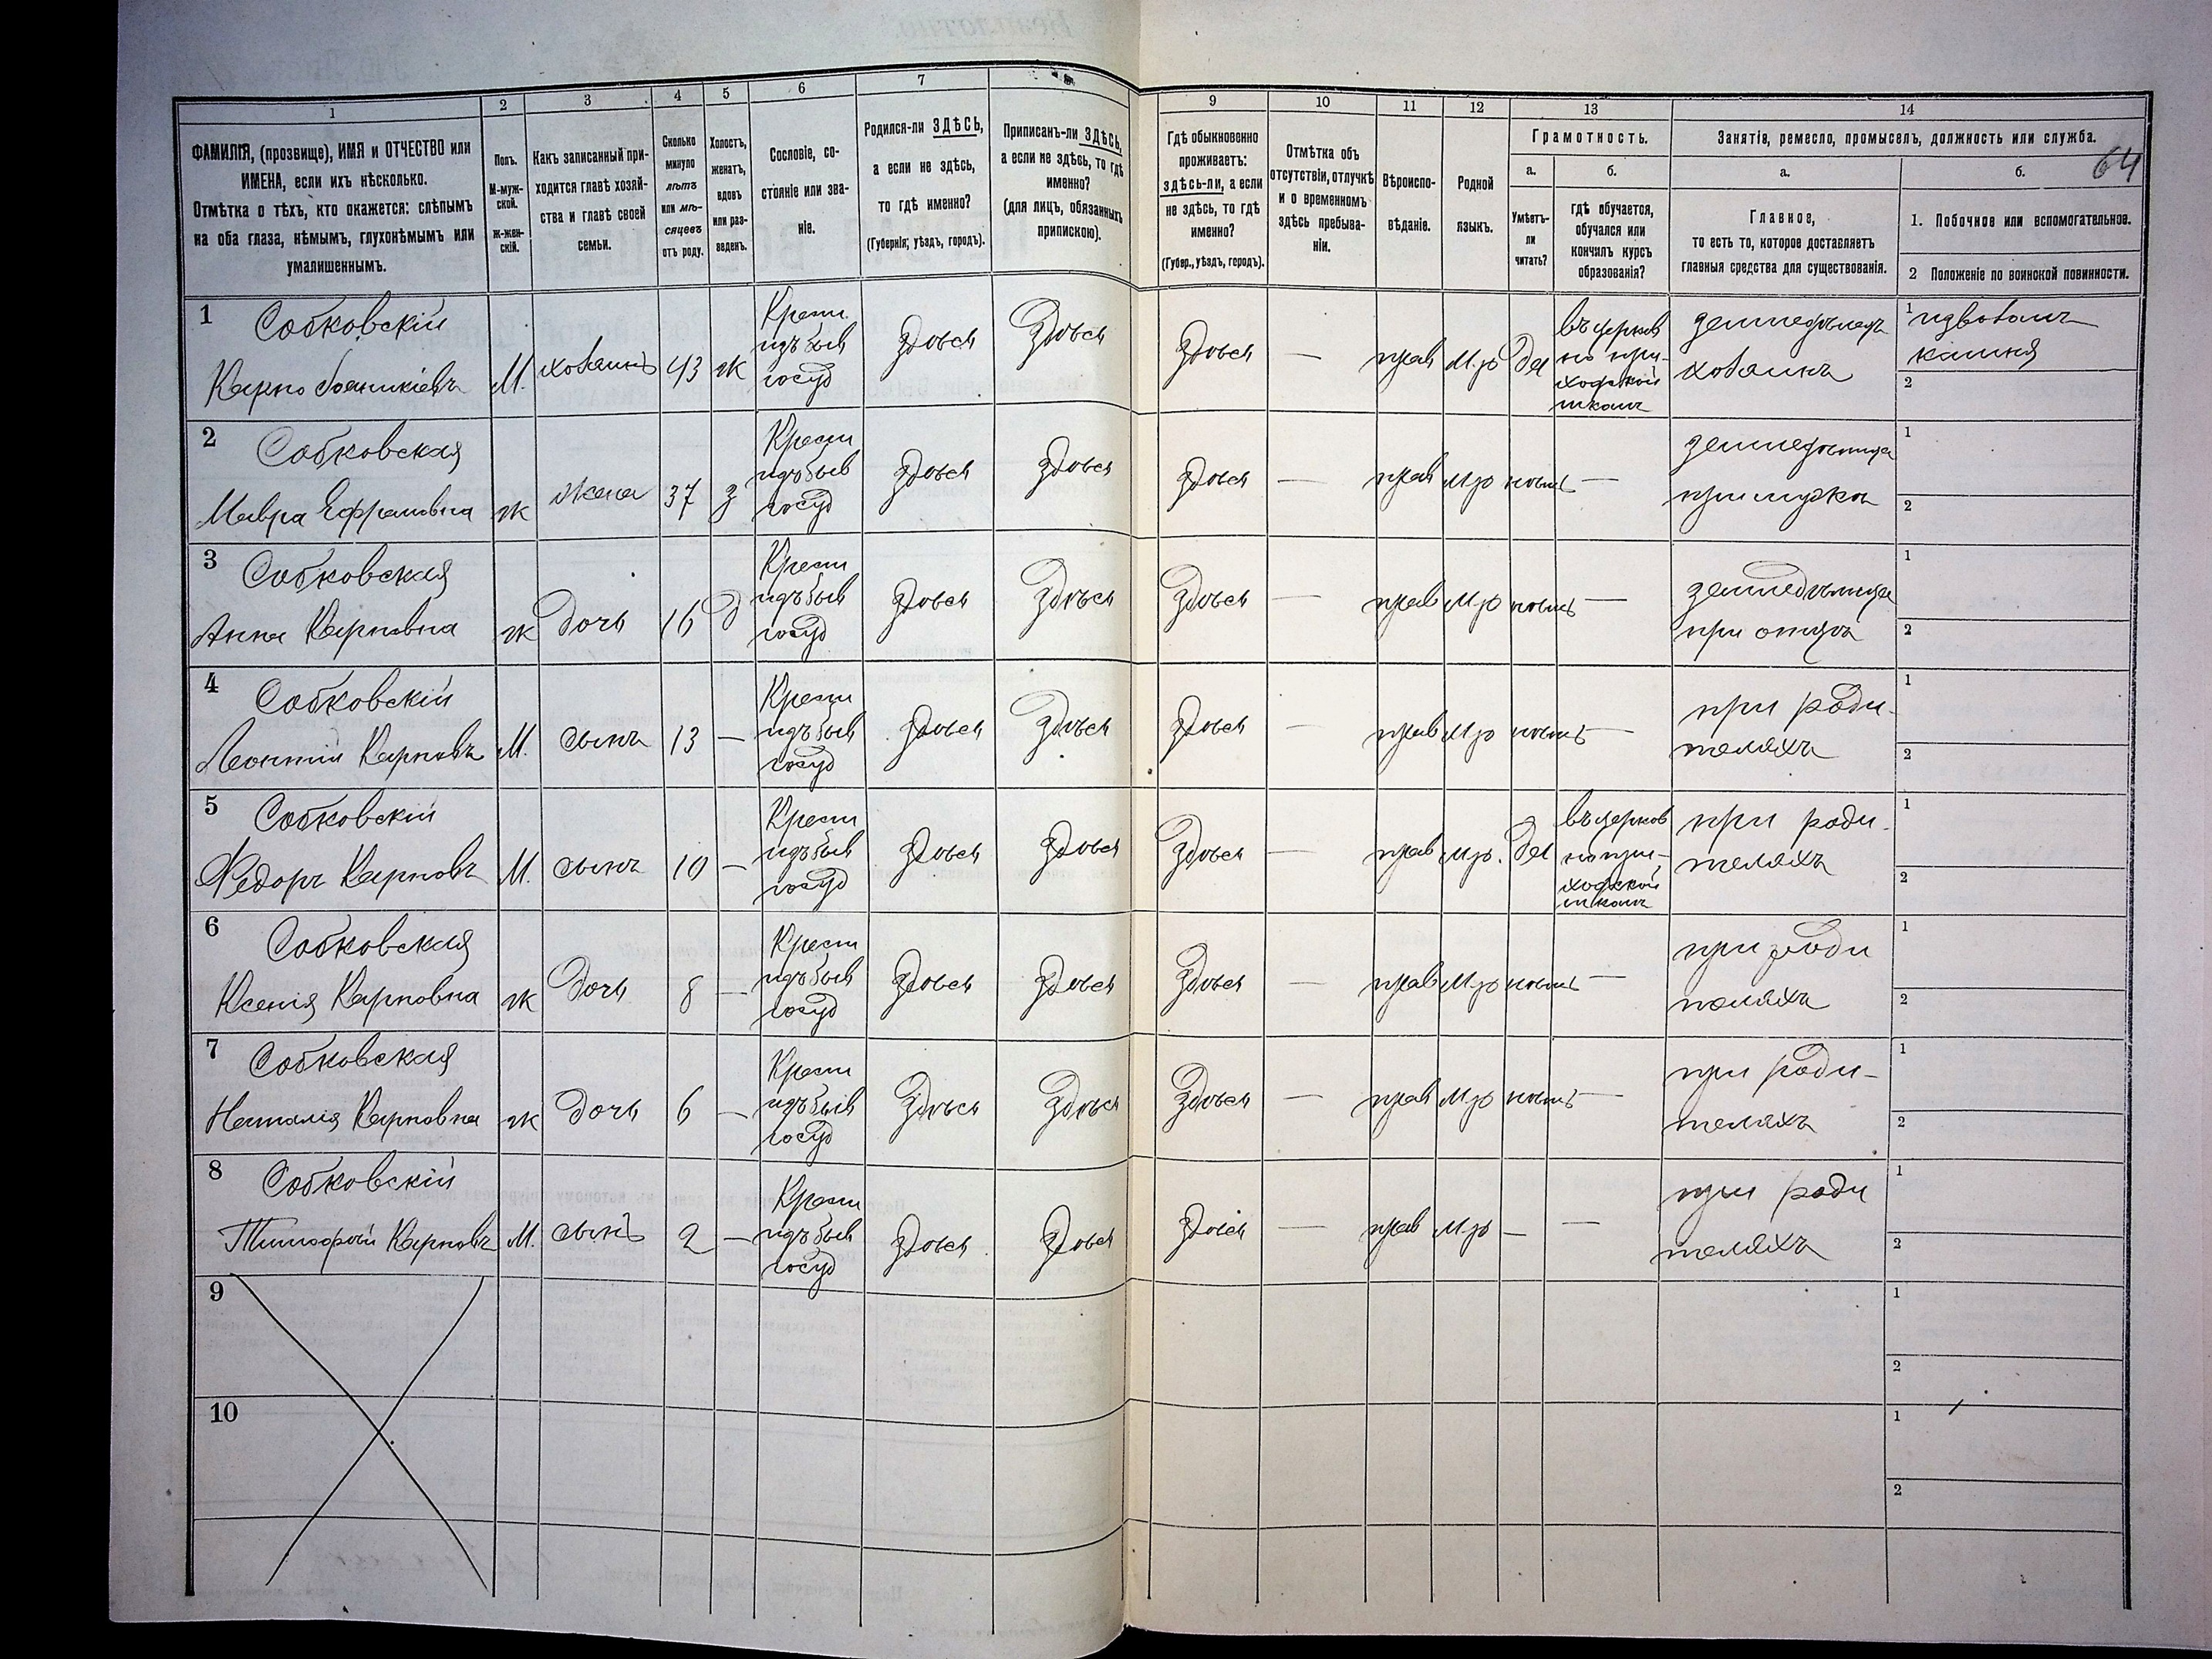 1
2
3
4
5
6
7
9
10
11
12
13
14
64
ФАМИЛІЯ, (прозвище), ИМЯ и ОТЧЕСТВО или
ИМЕНА, если ихъ нѣсколько.
Отмѣтка о тѣхъ, кто окажется: слѣпымъ
на оба глаза, нѣмымъ, глухонѣмымъ или
умалишеннымъ.
Полъ.
М-муж-
ской.
Ж-жен-
скій.
Какъ записанный при-
ходится главѣ хозяй-
ства и главѣ своей
семьи.
Сколько
минуло
лѣтъ
или мѣ-
сяцевъ
отъ роду.
Холостъ,
женатъ,
вдовъ
или раз-
веденъ.
Сословіе, со-
стояніе или зва-
ніе.
Родился-ли ЗДѢСЬ,
а если не здѣсь,
то гдѣ именно?
(Губернія; уѣздъ, городъ).
Приписанъ-ли ЗДѢСЬ,
а если не здѣсь, то гдѣ
именно?
(для лицъ, обязанныхъ
припискою).
Гдѣ обыкновенно
проживаетъ:
здѣсь-ли, а если
не здѣсь, то гдѣ
именно?
(Губер., уѣздъ, городъ).
Отмѣтка объ
отсутствіи, отлучкѣ
и о временномъ
здѣсь пребыва-
ніи.
Вѣроиспо-
вѣданіе.
Родной
языкъ.
Грамотность.
а.
Умѣетъ-
ли
читать?
б.
гдѣ обучается,
обучался или
кончилъ курсъ
образованія?
Занятія, ремесло, промыселъ, должность или служба.
а.
Главное,
то есть то, которое доставляетъ
главныя средства для существованія.
б.
1. Побочное или вспомогательное.
2 Положеніе по воинской повинности.
1 Собковскій
Карпо
М.
хозяинъ
43
ж
Крест.
изъ быв
госуд
здѣсь
здѣсь
здѣсь
—
прав
м.р
да
въ церков
но при-
ходской
школѣ
земледѣлецъ
хозяинъ
1 извозомъ
камня
2
2 Собковская
Мавра Ефрамовна
ж
жена
37
з
Крест
изъ быв
госуд
здѣсь
здѣсь
здѣсь
—
прав
м р
нѣтъ
—
земледѣлица
при мужѣ
1
2
3 Собковская
Анна Карповна
ж
дочь
16
д
Крест
изъ быв
госуд
здѣсь
здѣсь
здѣсь
—
прав
м р
нѣтъ
—
земледѣлица
при отцѣ
1
2
4 Собковскій
Леонтій Карповъ
М.
сынъ
13
—
Крест
изъ быв
госуд
здѣсь
здѣсь
здѣсь
—
прав
м р
нѣтъ
—
при роди-
теляхъ
1
2
5 Собковскій
Ѳедоръ Карповъ
М.
сынъ
10
—
Крест
изъ быв
госуд
здѣсь
здѣсь
здѣсь
—
прав
м р.
да
въ церков
но при-
ходской
школѣ
при роди-
теляхъ
1
2
6 Собковская
Ксенія Карповна
ж
дочь
8
—
Крест
изъ быв
госуд
здѣсь
здѣсь
здѣсь
—
прав
м р
нѣтъ
—
при роди
теляхъ
1
2
7 Собковская
Наталія Карповна
ж
дочь
6
—
Крест
изъ быв
госуд
здѣсь
здѣсь
здѣсь
—
прав
м р
нѣтъ
—
при роди-
теляхъ
1
2
8 Собковскій
Тимофѣй Карповъ
М.
сынъ
2
—
Крест
изъ быв
госуд
здѣсь
здѣсь
здѣсь
—
прав
м р
—
—
при роди
теляхъ
1
2
9
1
2
10
1
2